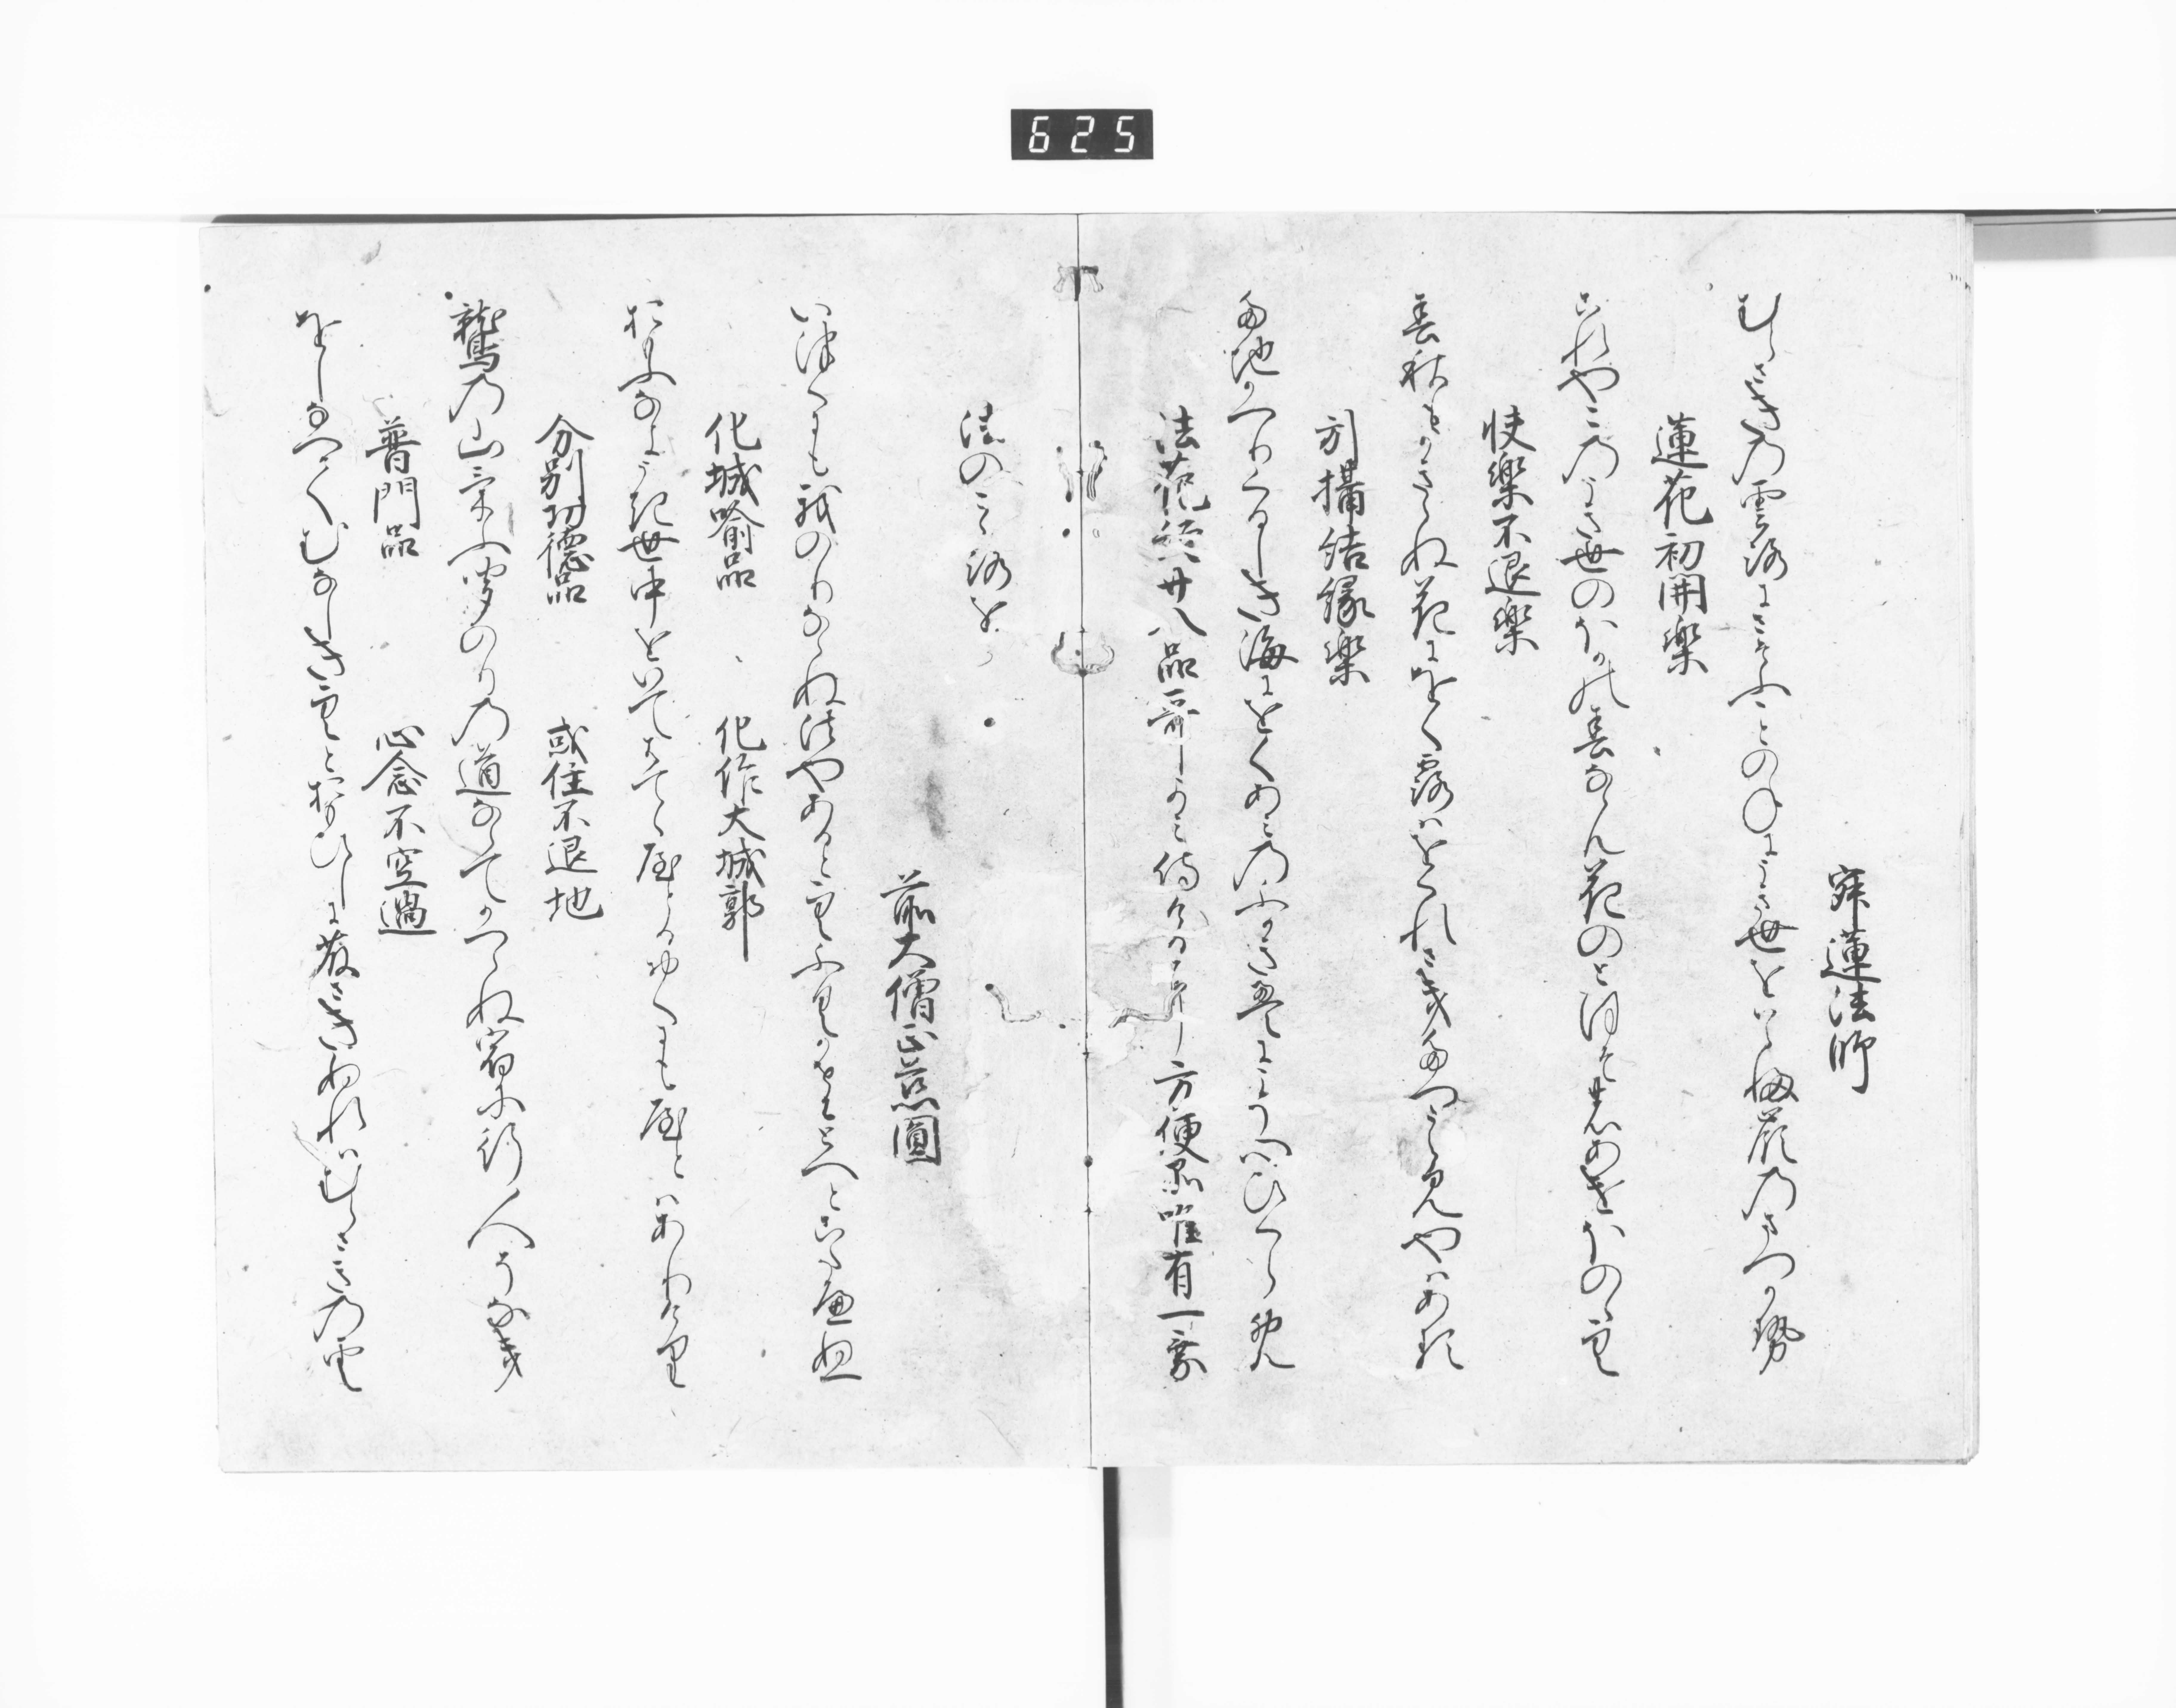 625
寂蓮法師
むらさき乃雲路にさそふことのねにうき世をはらふ峯乃まつ風
蓮花初開楽
これやこ乃うき世のほかの春ならん花のとほそのあけほのゝ空
快楽不退楽
春秋もかきらぬ花にをく露はをくれさきたつうらみやはある
引摂結縁楽
たちかへりくるしき海にをくあみもふかきえにこそ心ひくらめ
法花経廿八品哥よみ侍けるに方便品唯有一乗
法の心を
前大僧正慈圓
いつくにも我のりならぬ法やあると空ふく風にとへとこたへぬ
化城喩品　化作大城郭
おもふなようき世中をいてはてゝ屋とるおくにも屋とはありけり
分別功徳品　或住不退地
鷲乃山けふ聞のり乃道ならてかへらぬ宿に行人そなき
普門品　心念不空過
をしなへてむなしき空とおもひしに藤さきぬれはむらさき乃雲